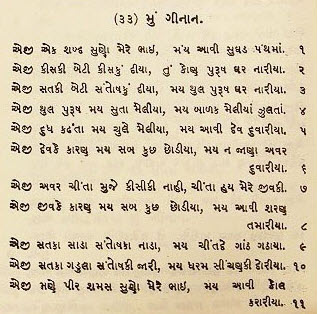 (૩૩) મું ગીનાન.
એજી એક શબ્દ સુણો મેરે ભાઇ, મંય આવી સુઘડ પંથમાં. ૧
એજી કીસકી બેટી કીસકું દીયા, તું કોણ પુરૂષ ઘર નારીયા. ૨
એજી સતકી બેટી સંતોષકું દીયા, મય ધુલ પુરૂષ ઘર નારીયા. ૩
એજી ધુલ પુરૂષ મય સુતા મેલીયા, મય બાળક મેલીયાં ઝુલતાં. ૪
એજી દુધ કઢતા મય ચુલે મેલીયા, મય આવી દેવ દુવારીયા. ૫
એજી દેવકે કારણ મય સબ કુછ છોડીયા, મય ન જાણા અવર
દુવારીયા. ૬
એજી અવર ચીંતા મુજે કીસીકી નાહી, ચીંતા હય મેરે જીવકી. ૭
એજી જીવકે કારણ મય સબ કુછ છોડીયા, મય આવી શરણ
તમારીયા. ૮
એજી સતકા સાડા સંતોષકા નાડા, મય ચીંતદે ગાંઠ ગઠાયા. ૯
એજી સતકા ગડુલા સંતોષકી જારી, મય ધરમ સીંચણકી દોરીયા. ૧૦
એજી ભણે પીર શમસ સુણો મેરે ભાઇ, મય આવી કોલ
કરારીયા. ૧૧